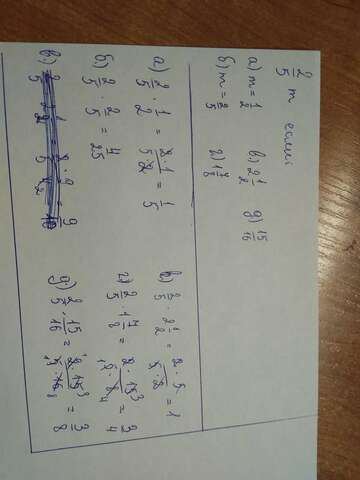 2/5 m если
а) m = 1/2 в) 2 1/2 д) 15/16
б) m = 2/5 г) 1 7/8
а) 2/5 · 1/2 = 2·1/5·2 = 1/5
б) 2/5 · 2/5 = 4/25
в)
в) 2/5 · 2 1/2 = 2·5/5·2 = 1
г) 2/5 · 1 7/8 = 2·15/5·8 = 3/4
д) 2/5 · 15/16 = 2·15/5·16 = 3/8